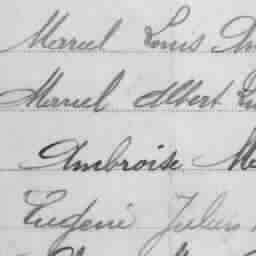 Marcel Louis
Marcel Albert
Ambroise
Eugène Julien